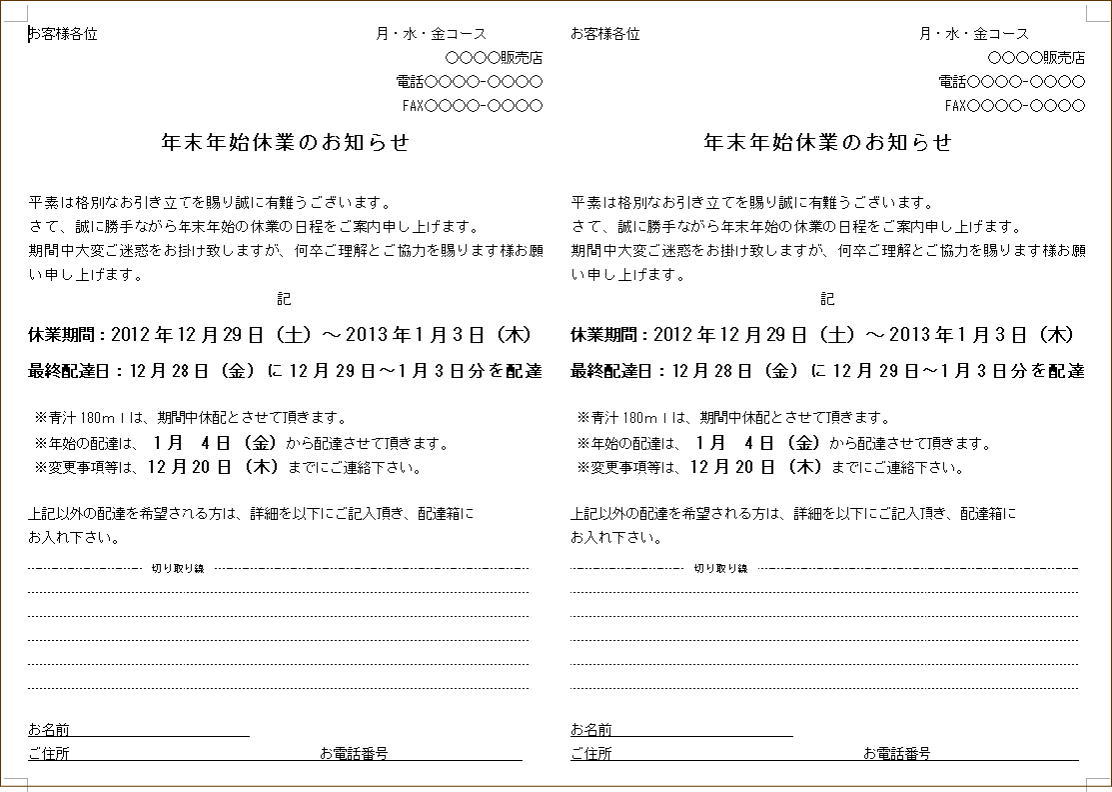 お客様各位　月・水・金コース
〇〇〇〇販売店
電話〇〇〇〇-〇〇〇〇
FAX〇〇〇〇-〇〇〇〇
年末年始休業のお知らせ
平素は格別なお引き立てを賜り誠に有難うございます。
さて、誠に勝手ながら年末年始の休業の日程をご案内申し上げます。
期間中大変ご迷惑をお掛け致しますが、何卒ご理解とご協力を賜ります様お願
い申し上げます。
記
休業期間：2012年12月29日（土）～2013年1月3日（木）
最終配達日：12月28日（金）に12月29日～1月3日分を配達
※青汁180ｍｌは、期間中休配とさせて頂きます。
※年始の配達は、1月　4日（金）から配達させて頂きます。
※変更事項等は、12月20日（木）までにご連絡下さい。
上記以外の配達を希望される方は、詳細を以下にご記入頂き、配達箱に
お入れ下さい。
切り取り線
お名前
ご住所　お電話番号
お客様各位　月・水・金コース
〇〇〇〇販売店
電話〇〇〇〇-〇〇〇〇
FAX〇〇〇〇-〇〇〇〇
年末年始休業のお知らせ
平素は格別なお引き立てを賜り誠に有難うございます。
さて、誠に勝手ながら年末年始の休業の日程をご案内申し上げます。
期間中大変ご迷惑をお掛け致しますが、何卒ご理解とご協力を賜ります様お願
い申し上げます。
記
休業期間：2012年12月29日（土）～2013年1月3日（木）
最終配達日：12月28日（金）に12月29日～1月3日分を配達
※青汁180ｍｌは、期間中休配とさせて頂きます。
※年始の配達は、1月　4日（金）から配達させて頂きます。
※変更事項等は、12月20日（木）までにご連絡下さい。
上記以外の配達を希望される方は、詳細を以下にご記入頂き、配達箱に
お入れ下さい。
切り取り線
お名前
ご住所　お電話番号